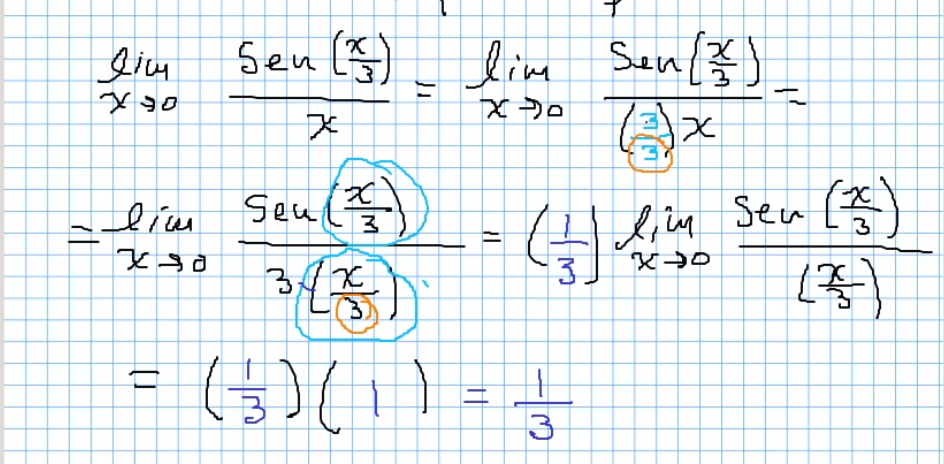 lim x→0 Sen(x/3) / x = lim x→0 Sen(x/3) / (3/3)x =
= lim x→0 Sen(x/3) / 3·(x/3) = (1/3) lim x→0 Sen(x/3) / (x/3)
= (1/3)(1) = 1/3